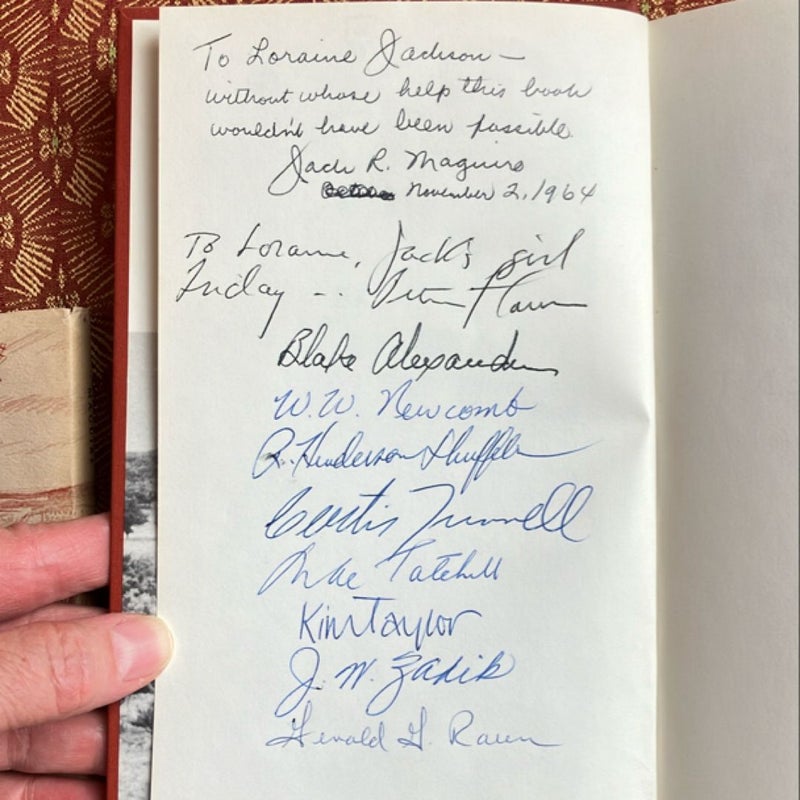 To Loraine Jackson —
without whose help this book
wouldn't have been possible.
Jack R. Maguire
November 2, 1964
To Loraine, Jack's girl
Friday -- Peter Flawn
Blake Alexander
W. W. Newcomb
R. Henderson Shuffler
Curtis Tunnell
Mae Tatchell
Kim Taylor
J. W. Zadik
Gerald G. Raun